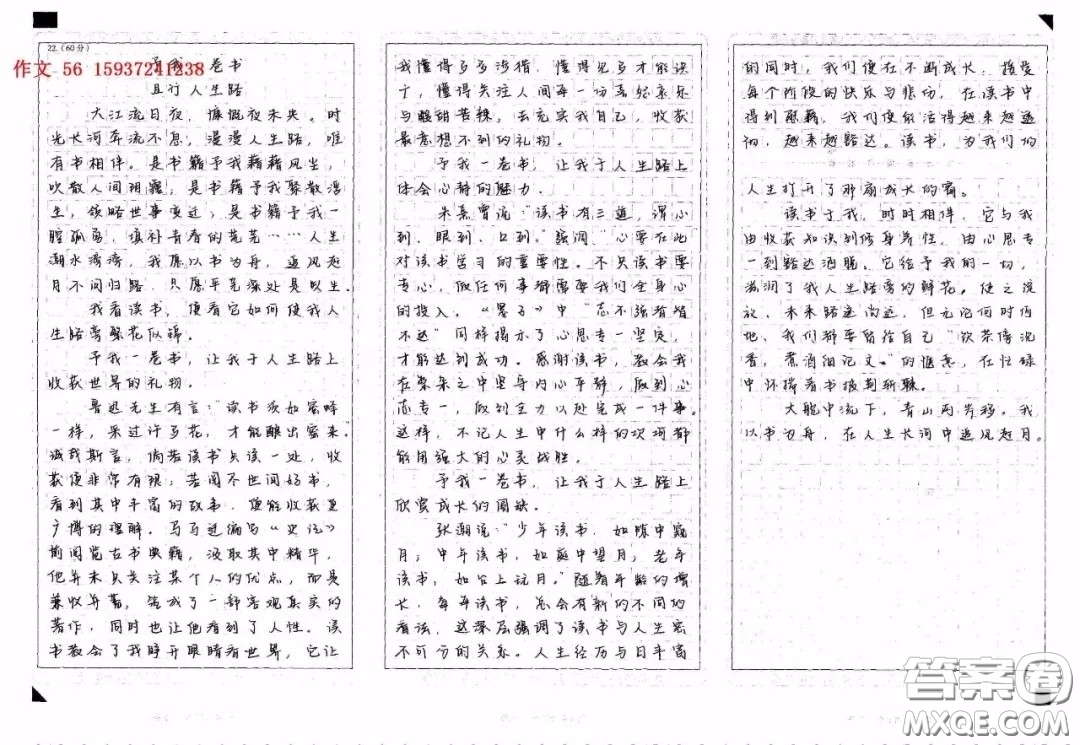 22.（60分）
作文 56 15937241238
予我一卷书
且行人生路
大江流日夜，慷慨夜未央。时
光长河奔流不息，漫漫人生路，唯
有书相伴。是书籍予我藉藉风尘，
吹散人间阴霾；是书籍予我聚散浮
生，领略世事变迁；是书籍予我一
腔孤勇，填补青春的荒芜……人生
潮水湾湾，我愿以书为舟，追风赶
月不问归路，只愿平芜深处是归生。
我看读书，便看它如何使我人
生路旁繁花似锦。
予我一卷书，让我于人生路上
收获世界的礼物。
鲁迅先生有言：“读书须如蜜蜂
一样，采过许多花，才能酿出蜜来。”
诚哉斯言，倘若读书只读一处，收
获便非常有限；若阅尽世间好书，
看到其中丰富的故事，便能收获更
广博的理解。司马迁编写《史记》
前阅览古书典籍，汲取其中精华，
他并未只关注某个人的优点，而是
兼收并蓄，完成了一部客观真实的
著作，同时也让他看到了人性。读
书教会了我睁开眼睛看世界，它让
我懂得多多涉猎，懂得见多才能识
广，懂得关注人间每一份喜怒哀乐
与酸甜苦辣，去充实我自己，收获
最意想不到的礼物。
予我一卷书，让我于人生路上
体会心静的魅力。
朱熹曾说：“读书有三道，谓心
到、眼到、口到。”强调“心要在此”
对读书学习的重要性。不只读书要
专心，做任何事都需要我们全身心
的投入，《墨子》中“志不强者智
不达”同样揭示了心思专一坚定，
才能达到成功。感谢读书，教会我
在繁杂之中坚守内心平静，做到心
志专一，做到全力以赴完成一件事。
这样，不论人生中什么样的坎坷都
能用强大的心灵战胜。
予我一卷书，让我于人生路上
欣赏成长的圆缺。
张潮说：“少年读书，如隙中窥
月；中年读书，如庭中望月；老年
读书，如台上玩月。”随着年龄的增
长，每每读书，总会有新的不同的
看法，这深层强调了读书与人生密
不可分的关系。人生经历与日丰富
的同时，我们便在不断成长，接受
每个阶段的快乐与悲伤，在读书中
得到慰藉，我们便能活得越来越通
彻，越来越豁达。读书，为我们的
人生打开了那扇成长的窗。
读书于我，时时相伴，它与我
由收获知识到修身养性，由心思专
一到豁达洒脱。它给予我的一切，
滋润了我人生路旁的鲜花，使之绽
放，未来路途尚远，但无论何时何
地，我们都要留给自己“饮茶傍沉
香，煮酒细论文”的惬意，在忙碌
中怀揣着书披荆斩棘。
大舰中流下，青山两岸移。我
以书为舟，在人生长河中追风赶月。
答案圈
MXQE.COM